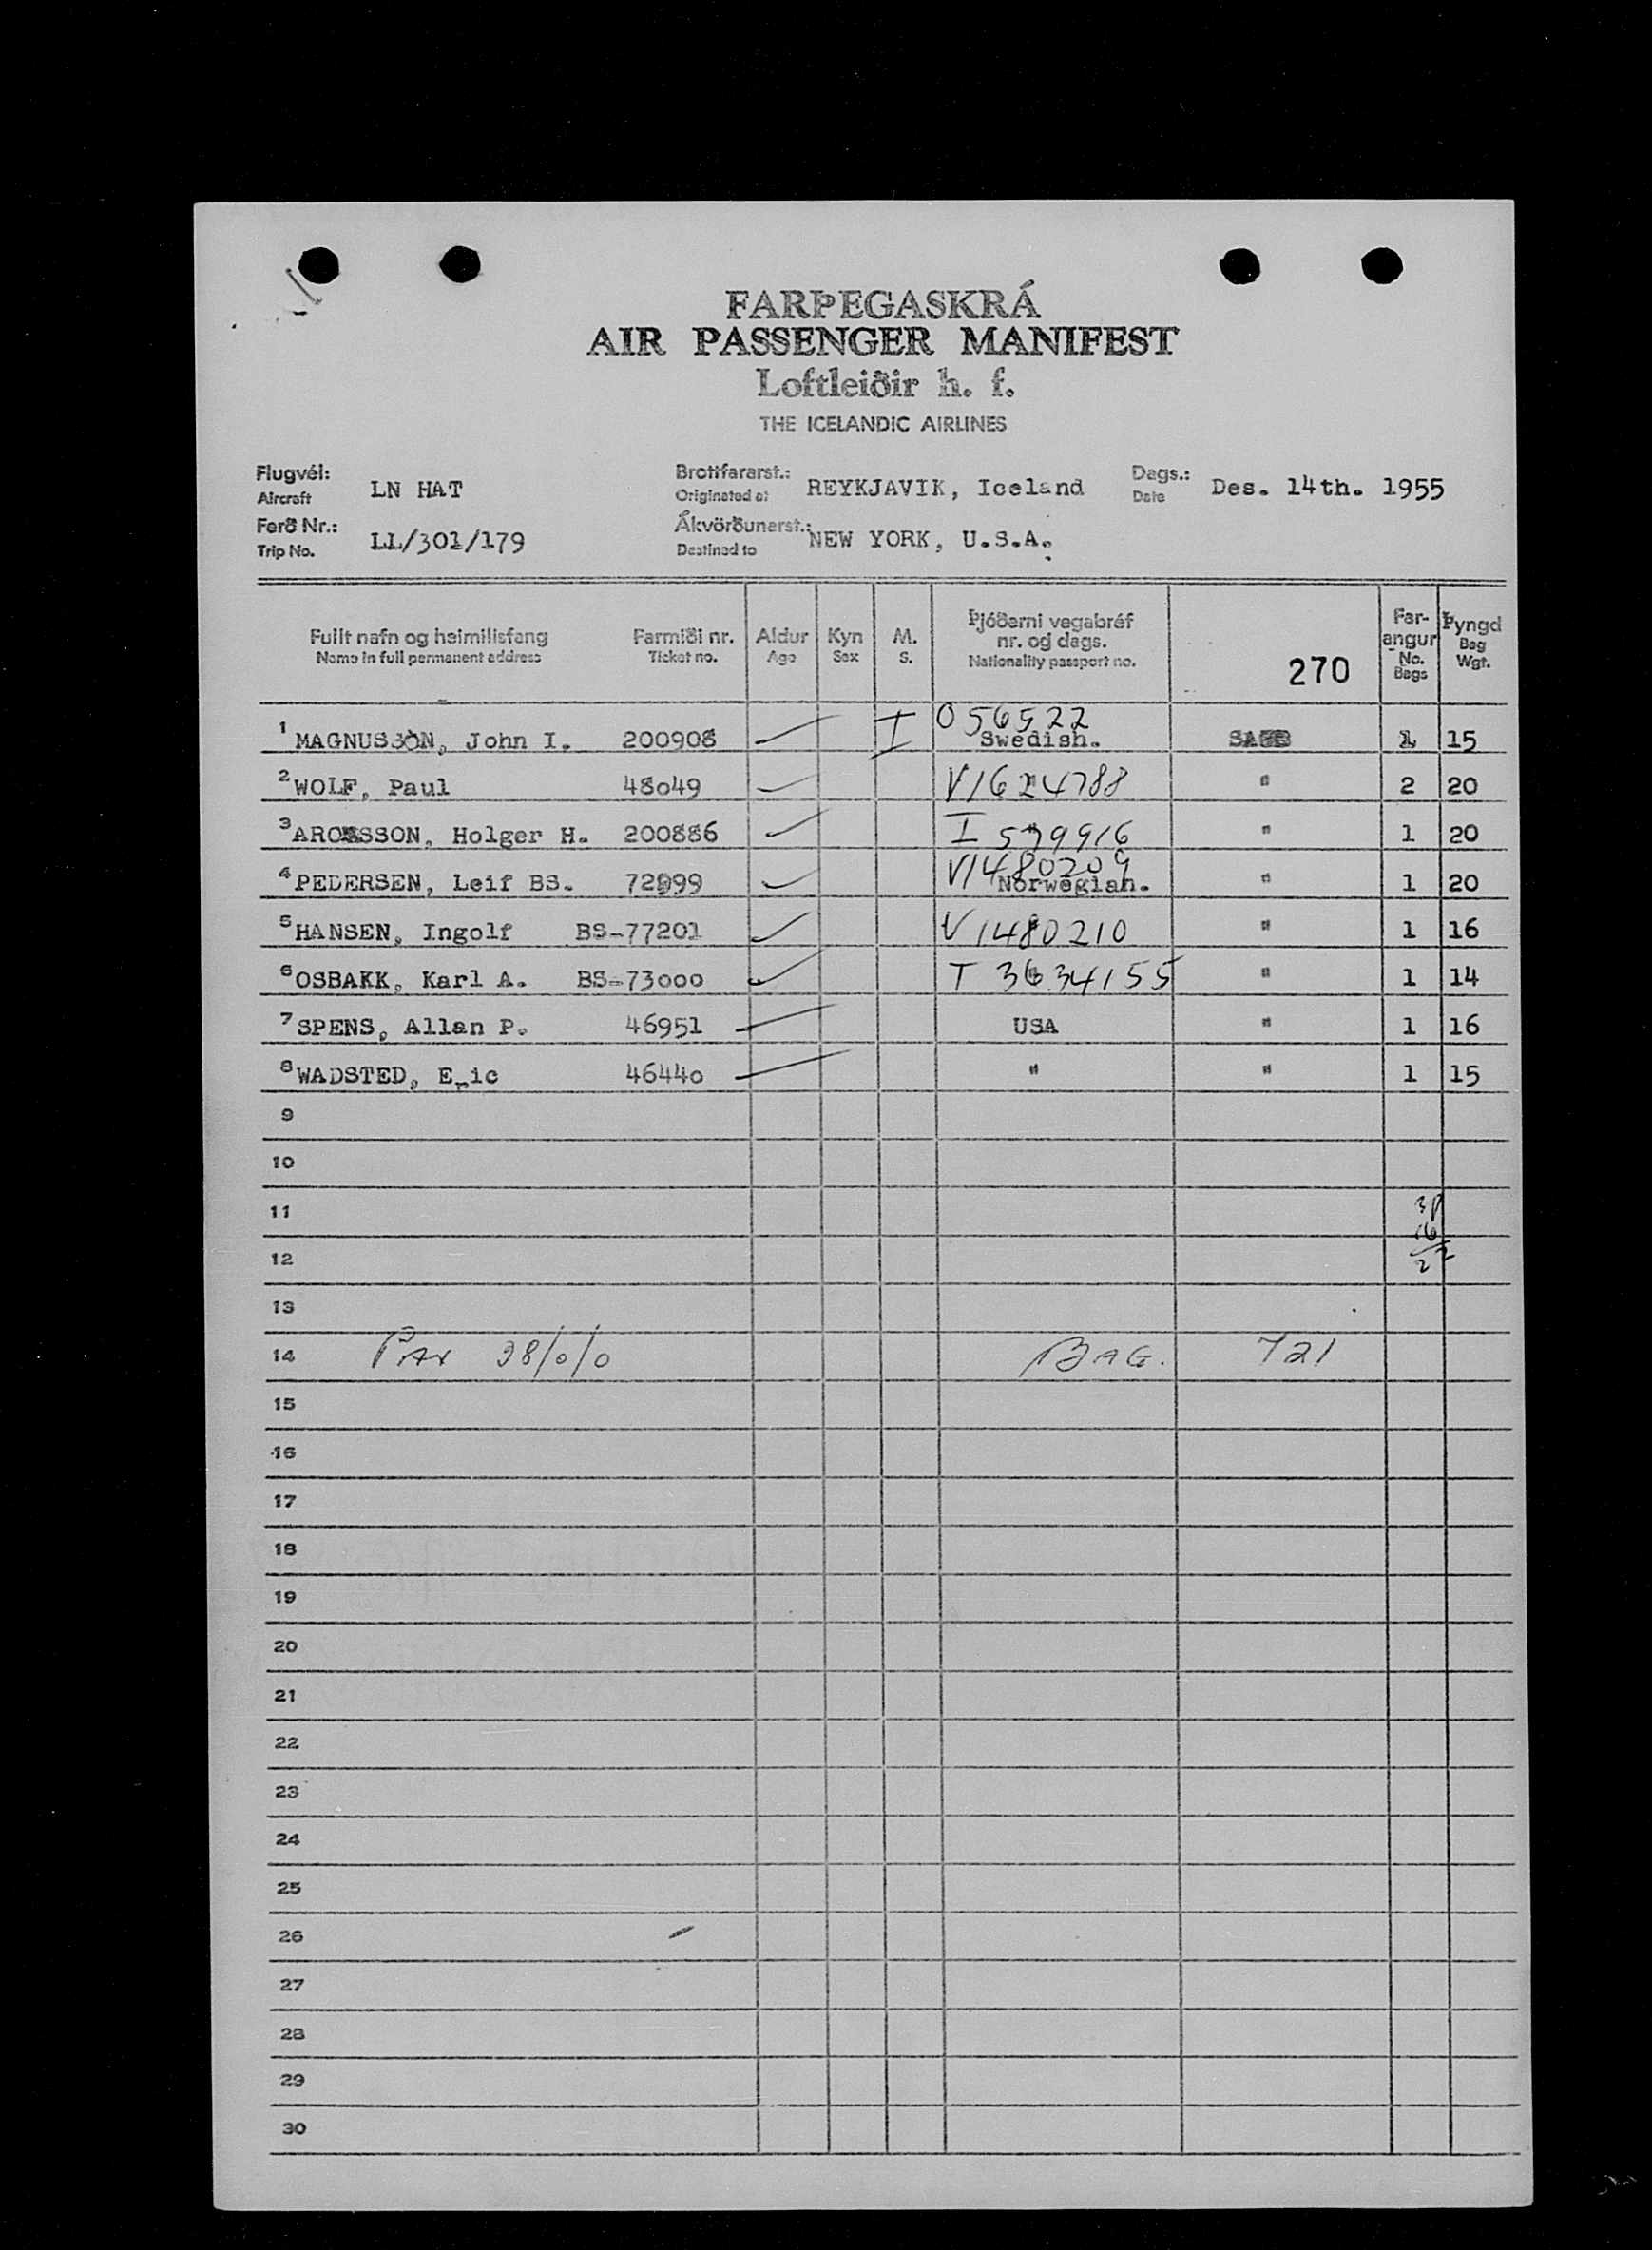 FARÞEGASKRÁ
AIR PASSENGER MANIFEST
Loftleiðir h. f.
THE ICELANDIC AIRLINES
Flugvél: LN HAT Brottfararst.: REYKJAVIK, Iceland Dags.: Des. 14th. 1955
Aircraft Originated at Date
Ferð Nr.: LL/301/179 Ákvörðunarst.: NEW YORK, U.S.A.
Trip No. Destined to
Fullt nafn og heimilisfang Farmiði nr. Aldur Kyn M. Þjóðerni vegabréf nr. og dags. Far-angur Þyngd
Name in full permanent address Ticket no. Age Sex S. Nationality passport no. 270 No. Bags Bag Wgt.
I 056522
1 MAGNUSSON, John I. 200908 Swedish. 1 15
2 WOLF, Paul 48049 V1624788 " 2 20
3 Holger H. 200886 I 579916 " 1 20
V1480209
4 PEDERSEN, Leif BS. 72999 Norwegian. " 1 20
5 HANSEN, Ingolf BS-77201 V1480210 " 1 16
6 OSBAKK, Karl A. BS-73000 T 3634155 " 1 14
7 SPENS, Allan P. 46951 USA " 1 16
8 WADSTED, Eric 46440 " " 1 15
9
10
11
12
13
14 PAX 38/0/0 BAG. 721
15
16
17
18
19
20
21
22
23
24
25
26
27
28
29
30